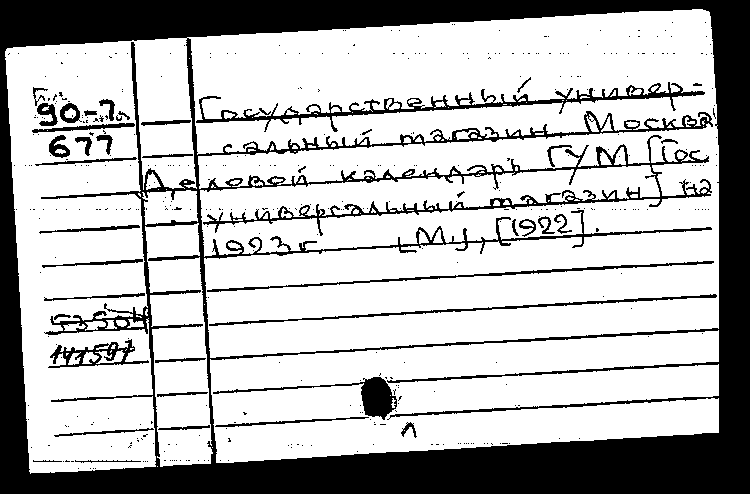 90-7
677
Государственный универ-
сальный магазин. Москва
Деловой календарь ГУМ [Гос
универсальный магазин] на
1923 г. [М.], [1922].
53504
141597